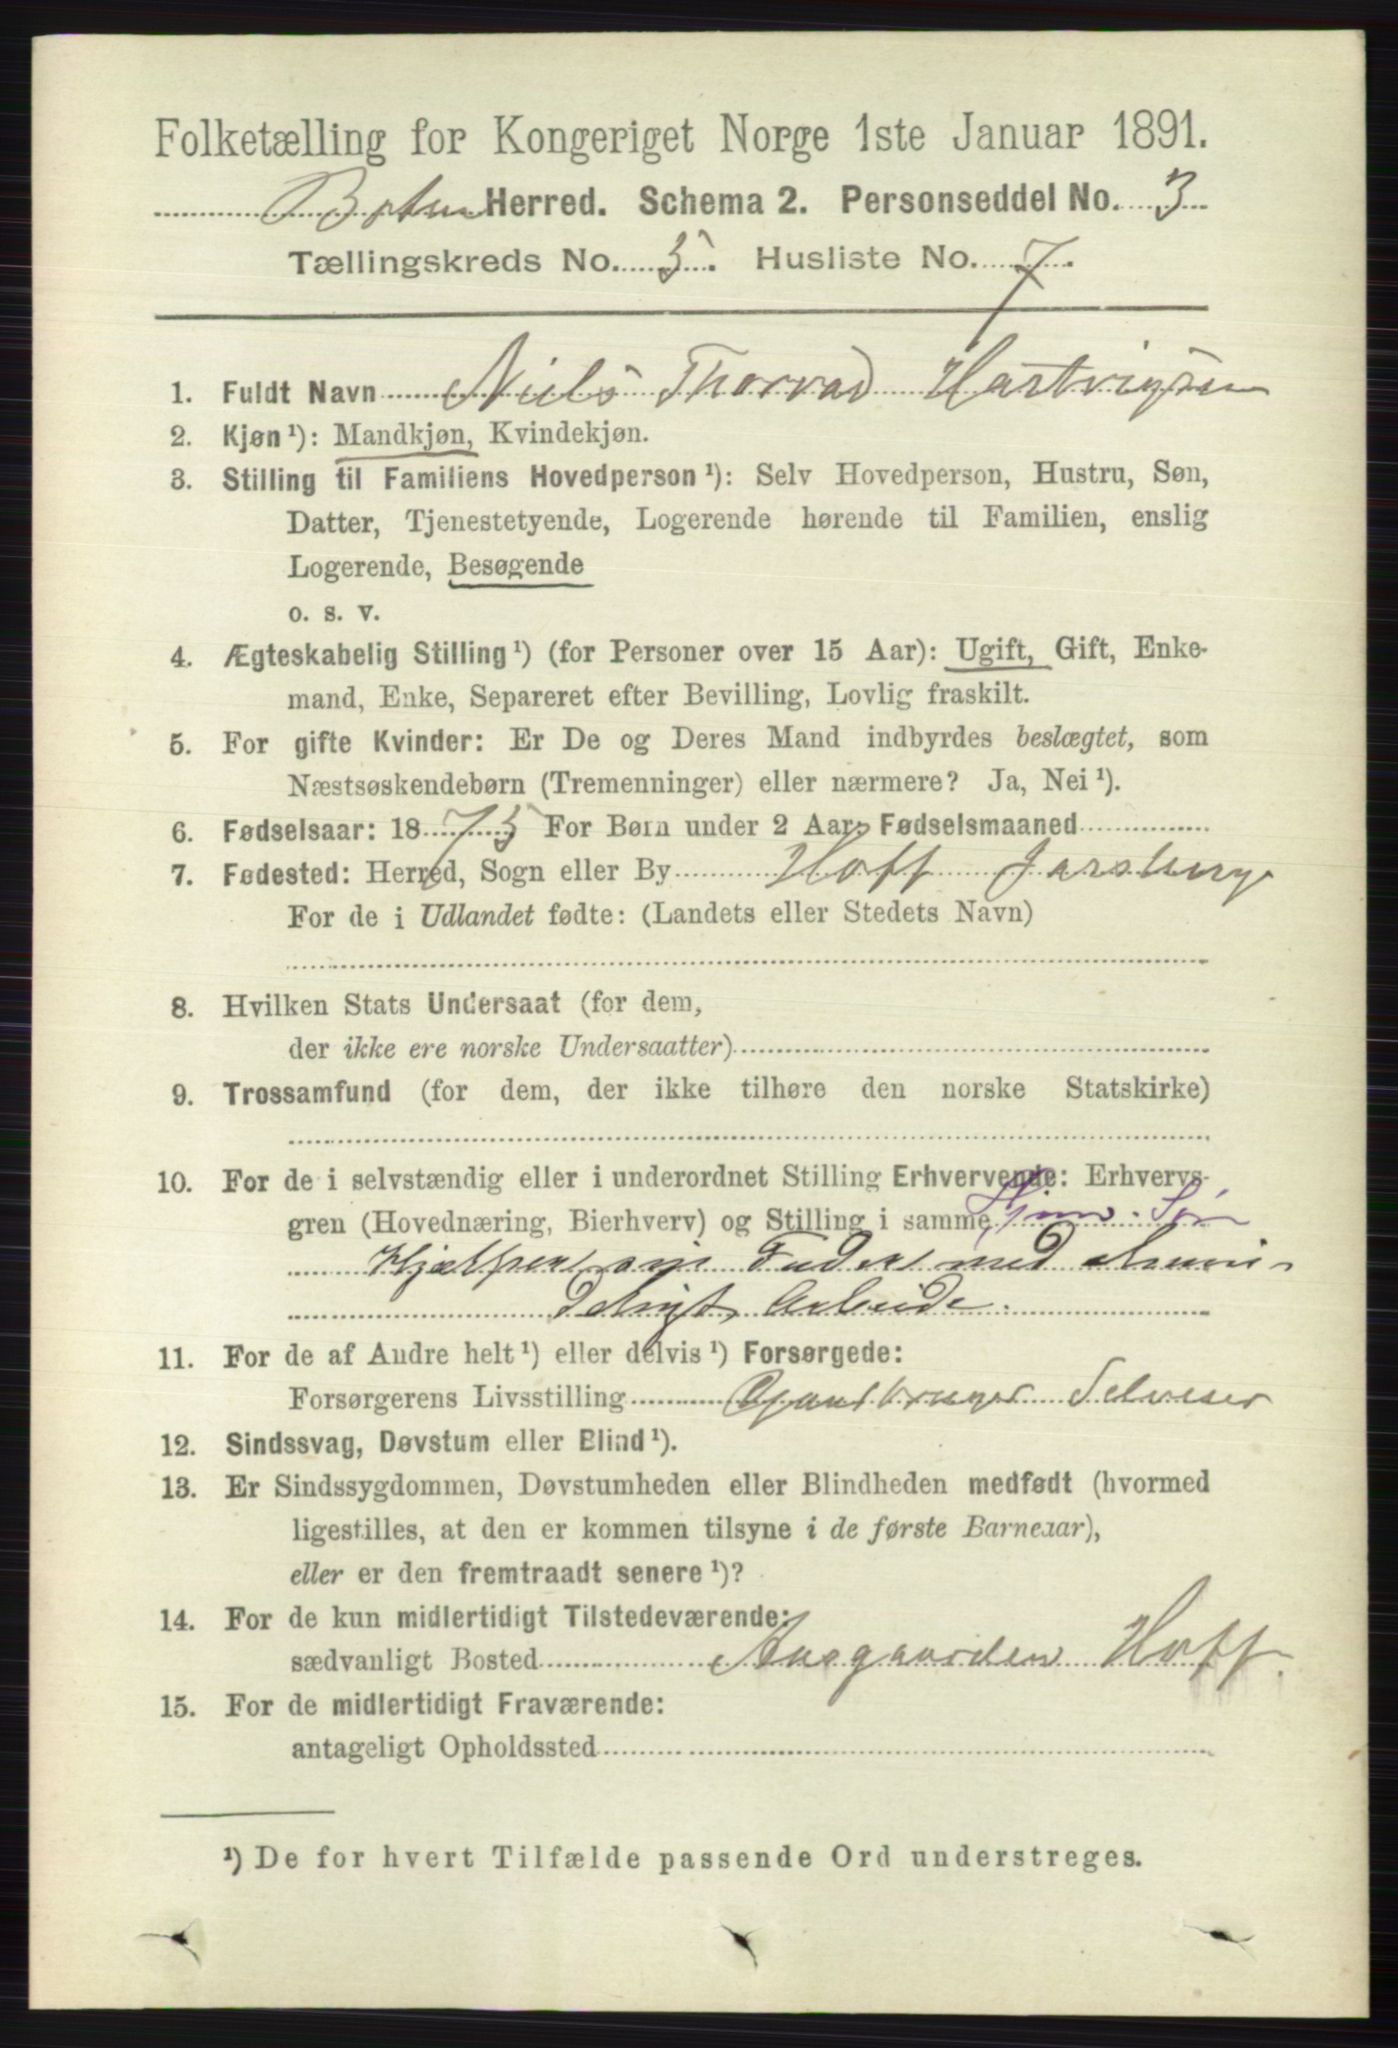 Folketælling for Kongeriget Norge 1ste Januar 1891.
Botne Herred. Schema 2. Personseddel No. 3
Tællingskreds No. 5. Husliste No. 7.
1. Fuldt Navn Niels Thorvad Hartvigsen
2. Kjøn ¹): Mandkjøn, Kvindekjøn.
3. Stilling til Familiens Hovedperson ¹): Selv Hovedperson, Hustru, Søn,
Datter, Tjenestetyende, Logerende hørende til Familien, enslig
Logerende, Besøgende
o. s. v.
4. Ægteskabelig Stilling ¹) (for Personer over 15 Aar): Ugift, Gift, Enke-
mand, Enke, Separeret efter Bevilling, Lovlig fraskilt.
5. For gifte Kvinder: Er De og Deres Mand indbyrdes beslægtet, som
Næstsøskendebørn (Tremenninger) eller nærmere? Ja, Nei ¹).
6. Fødselsaar: 1875 For Børn under 2 Aar: Fødselsmaaned
7. Fødested: Herred, Sogn eller By Hoff Jarsberg
For de i Udlandet fødte: (Landets eller Stedets Navn)
8. Hvilken Stats Undersaat (for dem,
der ikke ere norske Undersaatter)
9. Trossamfund (for dem, der ikke tilhøre den norske Statskirke)
10. For de i selvstændig eller i underordnet Stilling Erhvervende: Erhvervs-
gren (Hovednæring, Bierhverv) og Stilling i samme Søn
Hjælper sin Fader med almin-
deligt Arbeide.
11. For de af Andre helt ¹) eller delvis ¹) Forsørgede:
Forsørgerens Livsstilling Gaardbruger Selveier
12. Sindssvag, Døvstum eller Blind ¹).
13. Er Sindssygdommen, Døvstumheden eller Blindheden medfødt (hvormed
ligestilles, at den er kommen tilsyne i de første Barneaar),
eller er den fremtraadt senere ¹)?
14. For de kun midlertidigt Tilstedeværende:
sædvanligt Bosted Aasgaarden Hoff.
15. For de midlertidigt Fraværende:
antageligt Opholdssted
¹) De for hvert Tilfælde passende Ord understreges.